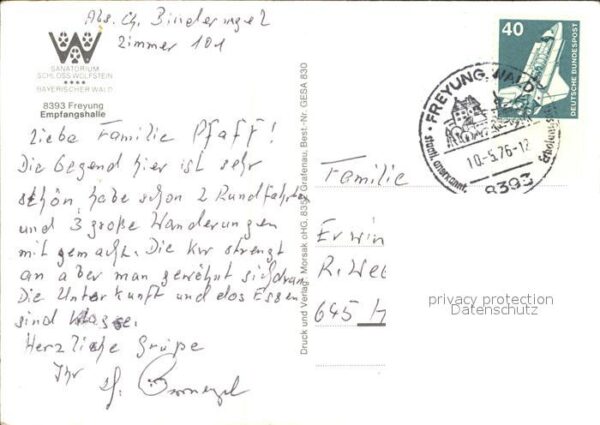 Abs. Ch. Bindernagel
Zimmer 101
SANATORIUM
SCHLOSS WOLFSTEIN
BAYERISCHER WALD
8393 Freyung
Empfangshalle
Liebe Familie Pfaff!
Die Gegend hier ist sehr
schön, habe schon 2 Rundfahrten
und 3 große Wanderungen
mit gemacht. Die Kur strengt
an aber man gewöhnt sich dran
Die Unterkunft und das Essen
sind Klasse.
Herzliche Grüße
Ihr Ch. Binnagel
Druck und Verlag Morsak oHG, 835 Grafenau. Best.-Nr. GESA 830
40
DEUTSCHE BUNDESPOST
FREYUNG, WALD
10.-5.76-12
staatl. anerkannt.
8393
Familie
Erwin
R. We
645 H
privacy protection
Datenschutz